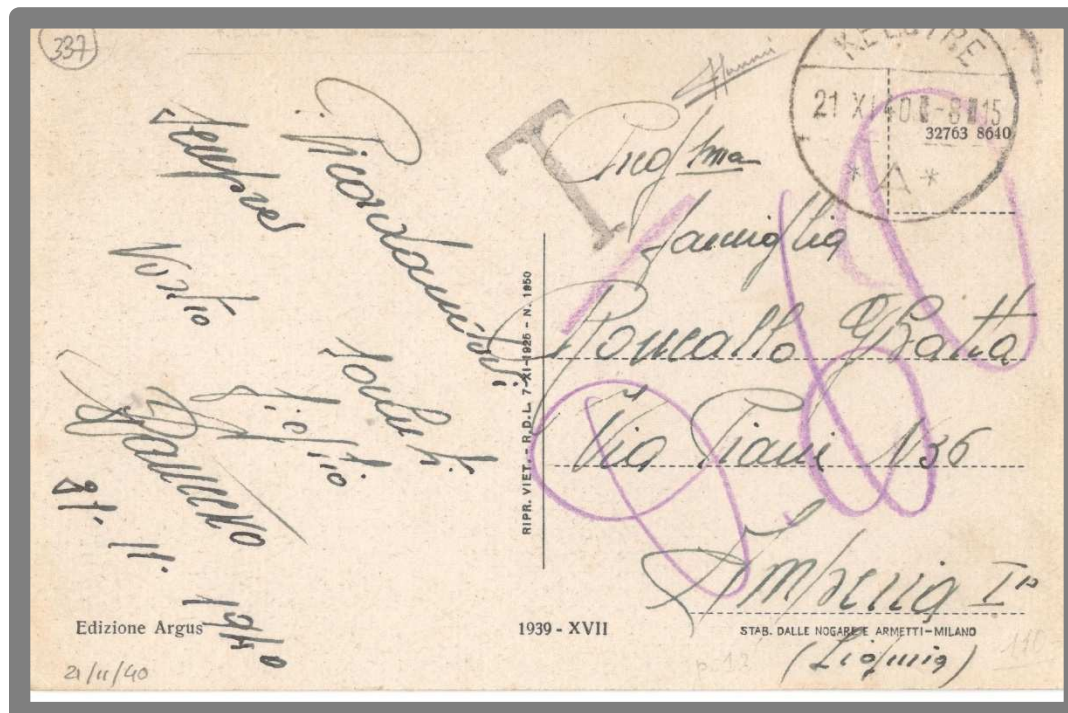 337
Ricordandovi
sempre
saluti
Vostro
21. 11. 1940
Edizione Argus
21/11/40
RIPR. VIET. - R.D.L. 7-XI-1925 - N. 1950
1939 - XVII
T
21 XI 40 - 8 15
32763 8640
* A *
famiglia
Roncallo GBatta
Via Piave 136
Imperia Iª
(Liguria)
STAB. DALLE NOGARE E ARMETTI - MILANO
p. 12
110